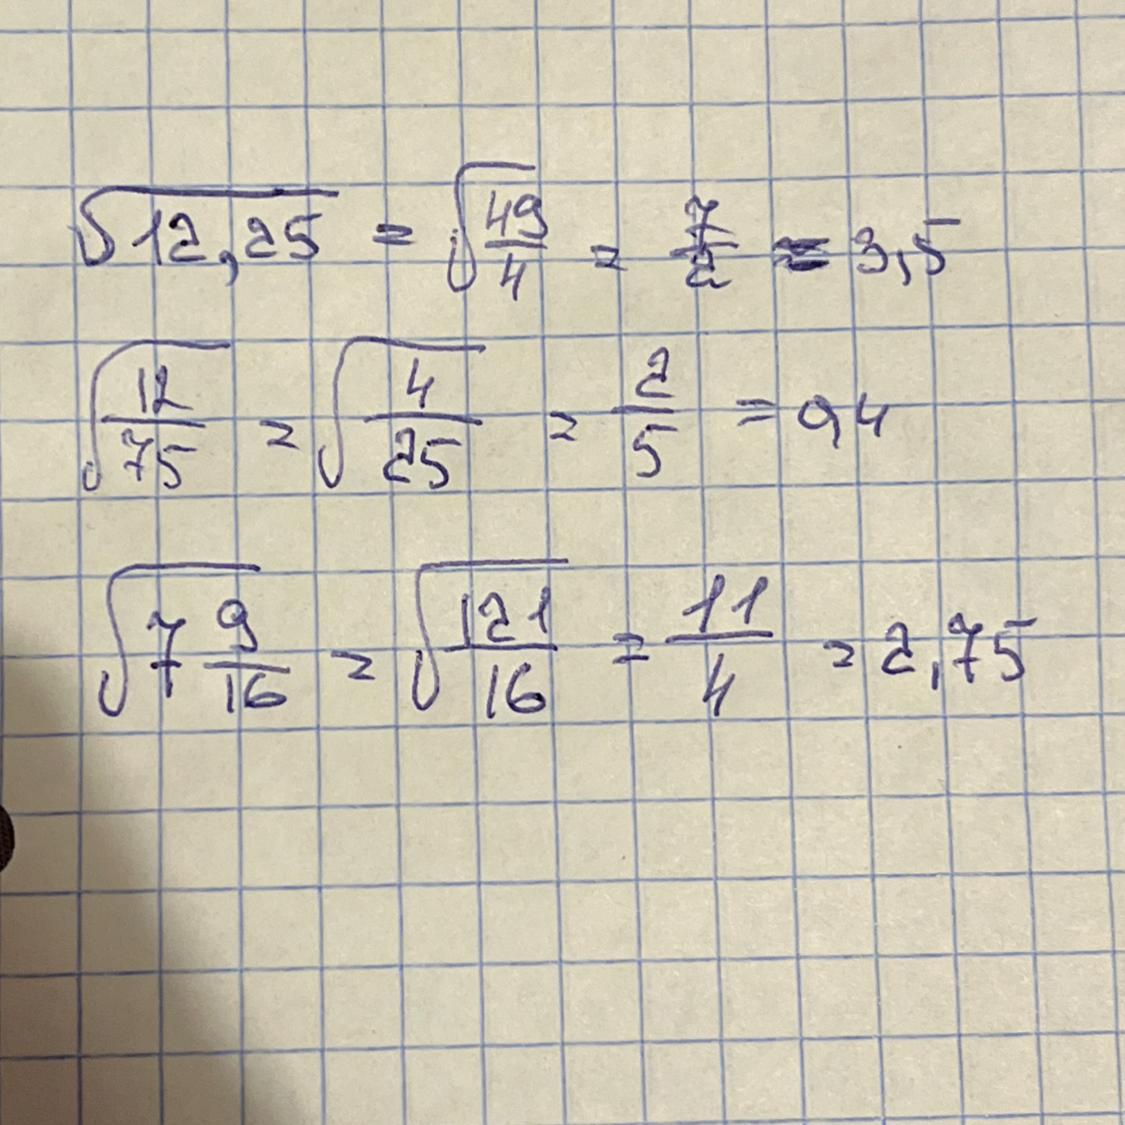 √12,25 = √49/4 = 7/2 = 3,5
√12/75 = √4/25 = 2/5 = 0,4
√7 9/16 = √121/16 = 11/4 = 2,75